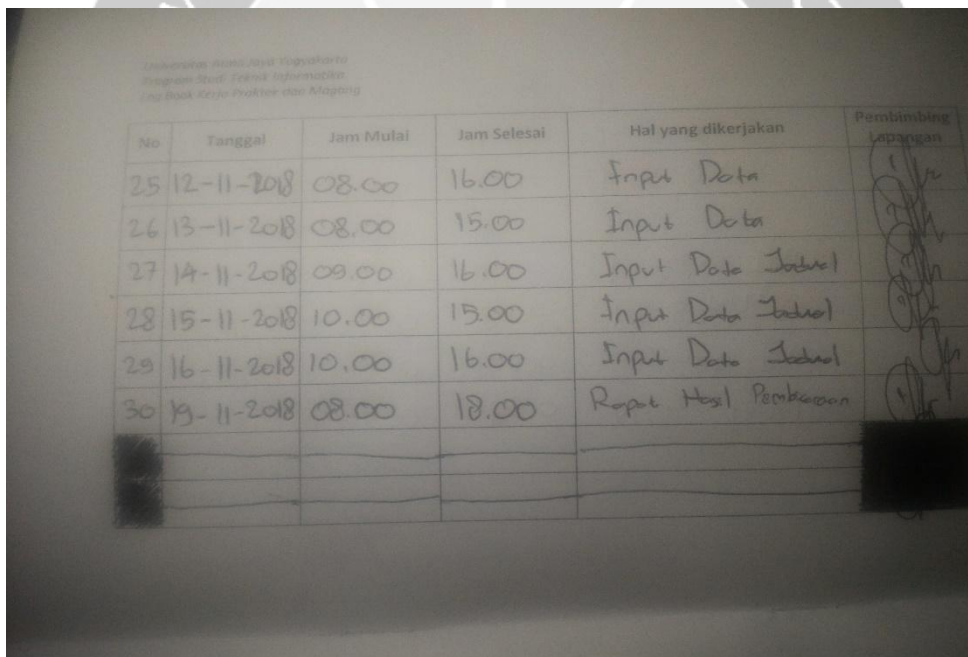 Universitas Atma Jaya Yogyakarta
Program Studi Teknik Informatika
Log Book Kerja Praktek dan Magang
No Tanggal Jam Mulai Jam Selesai Hal yang dikerjakan Pembimbing Lapangan
25 12-11-2018 08.00 16.00 Input Data
26 13-11-2018 08.00 15.00 Input Data
27 14-11-2018 09.00 16.00 Input Data Jadwal
28 15-11-2018 10.00 15.00 Input Data Jadwal
29 16-11-2018 10.00 16.00 Input Data Jadwal
30 19-11-2018 08.00 18.00 Rapat Hasil